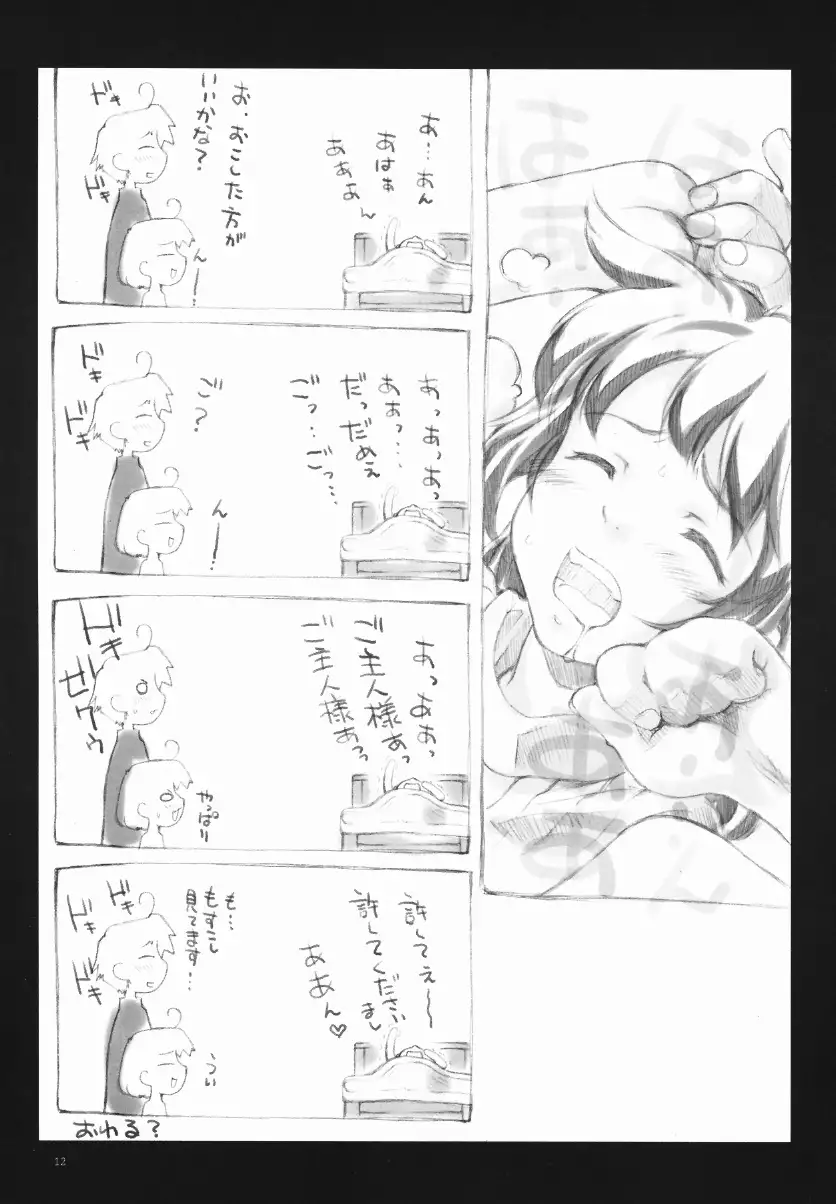 あ…あん
あはぁ
あああん
お、おこした方が
いいかな?
んー
ドキ
ドキ
あっあっあっ
あぁっ…
だっだめえ
ごっ…ごっ…
ご?
んー
ドキ
ドキ
あっああっ
ご主人様あっ
ご主人様あっっ
やっぱり
ドキ
許してぇ〜〜
許してくださいまし
ああん♡
も…
もすこし
見てます…
うい
ドキ
ドキ
ドキ
おわる?
12